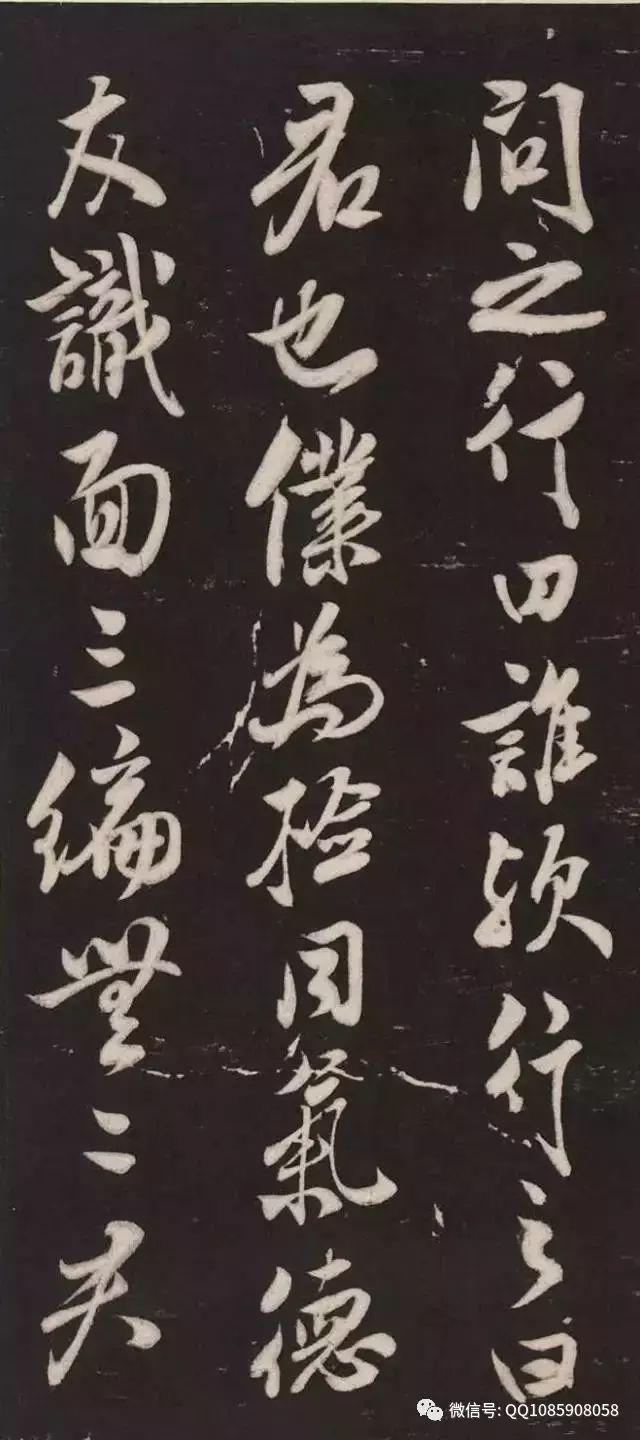 問之行誰行曰
君也僕為同氣德
友識面三編無二夫
微信号: QQ1085908058